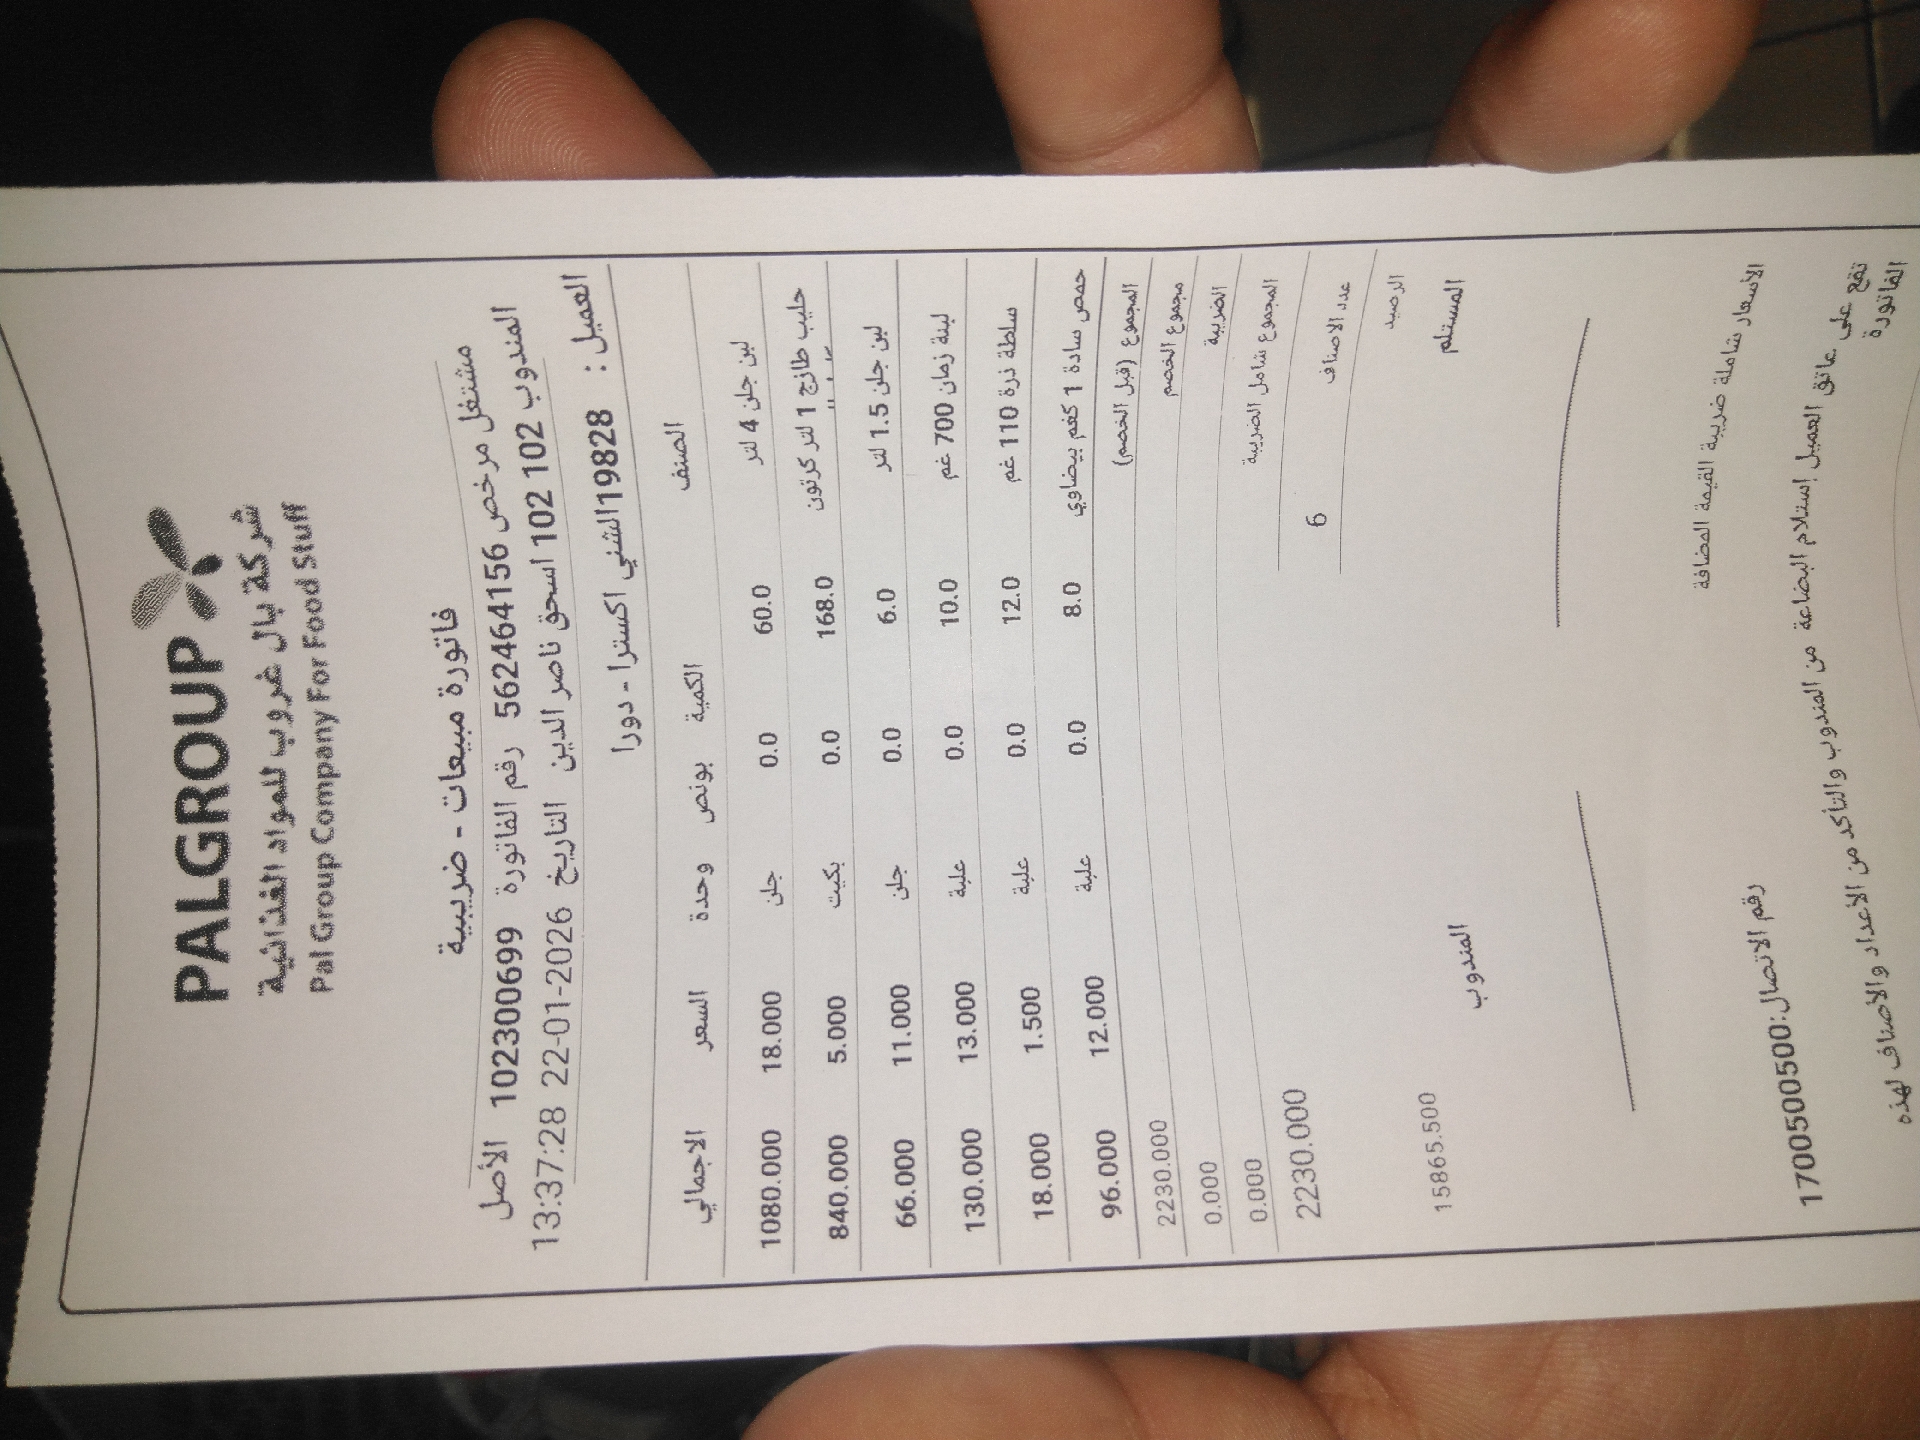 PALGROUP
شركة بال غروب للمواد الغذائية
Pal Group Company For Food Stuff
فاتورة مبيعات - ضريبية
مشتغل مرخص 562464156 رقم الفاتورة 102300699 الأصل
المندوب 102 102 اسحق ناصر الدين التاريخ 22-01-2026 13:37:28
العميل : 19828الشني اكسترا - دورا
الصنف الكمية بونص وحدة السعر الاجمالي
لبن جلن 4 لتر 60.0 0.0 جلن 18.000 1080.000
حليب طازج 1 لتر كرتون 168.0 0.0 بكيت 5.000 840.000
لبن جلن 1.5 لتر 6.0 0.0 جلن 11.000 66.000
لبنة زمان 700 غم 10.0 0.0 علبة 13.000 130.000
سلطة ذرة 110 غم 12.0 0.0 علبة 1.500 18.000
حمص سادة 1 كغم بيضاوي 8.0 0.0 علبة 12.000 96.000
المجموع (قبل الخصم) 2230.000
مجموع الخصم 0.000
الضريبة 0.000
المجموع شامل الضريبة 2230.000
عدد الاصناف 6
الرصيد 15865.500
المستلم المندوب
الأسعار شاملة ضريبة القيمة المضافة
رقم الاتصال:1700500500
تقع على عاتق العميل إستلام البضاعة من المندوب والتأكد من الأعداد والاصناف لهذه
الفاتورة